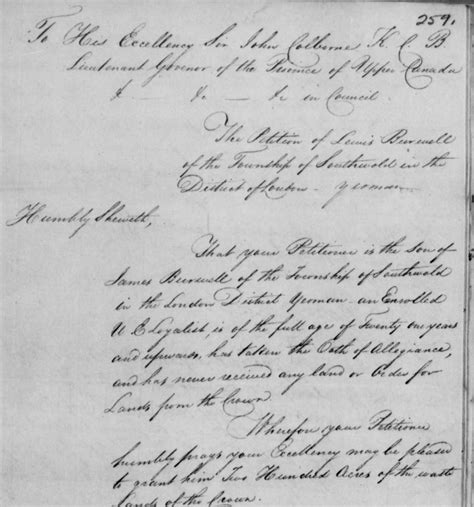 259.
To His Eccellency Sir John Colborne K. C. B
Lieutenant Govenor of the Province of Upper Canada
& — &c — &c in Council.
The Petition of Lewis Burwell
of the Township of Southwold in the
District of London — yeoman
Humbly Sheweth,
That your Petitioner is the Son of
James Burwell of the Township of Southwold
in the London District Yeoman an Enrolled
U E Loyalist, is of the full age of Twenty one years
and upwards, has taken the Oath of Allegiance,
and has never received any land or Order for
Lands from the Crown
Wherefore your Petitioner
humbly prays your Excellency may be pleased
to grant him Two Hundred Acres of the waste
Lands of the Crown.